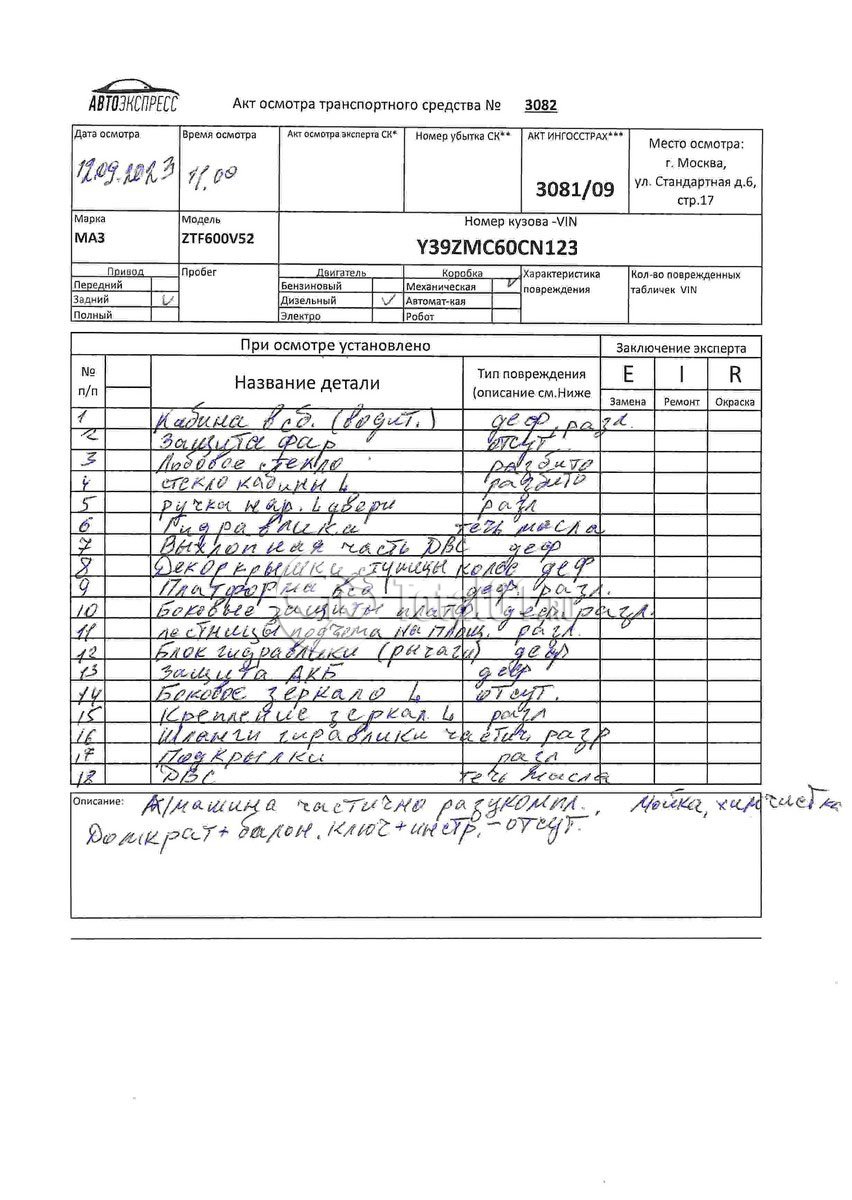 АВТОЭКСПРЕСС
Акт осмотра транспортного средства № 3082
Дата осмотра
12.09.2023
Время осмотра
11.00
Акт осмотра эксперта СК*
Номер убытка СК**
АКТ ИНГОССТРАХ***
3081/09
Место осмотра:
г. Москва,
ул. Стандартная д.6,
стр.17
Марка
МАЗ
Модель
ZTF600V52
Номер кузова -VIN
Y39ZMC60CN123
Привод
Передний
Задний ✓
Полный
Пробег
Двигатель
Бензиновый
Дизельный ✓
Электро
Коробка
Механическая ✓
Автомат-кая
Робот
Характеристика
повреждения
Кол-во поврежденных
табличек VIN
При осмотре установлено
Заключение эксперта
№
п/п
Название детали
Тип повреждения
(описание см.Ниже
E I R
Замена Ремонт Окраска
1 Кабина в сб. (водит.) деф, разл.
2 Защита фар отсут.
3 Лобовое стекло разбито
4 стекло кабины L разбито
5 ручка нар. L двери разл
6 Гидравлика течь масла
7 Выхлопная часть ДВС деф
8 Декор крышки ступицы колес деф
9 Платформа деф. разл.
10 Боковые защиты платф деф разл.
11 лестницы подъема на площ. разл.
12 Блок гидравлики (рычаги) деф
13 Защита АКБ деф
14 Боковое зеркало L отсут.
15 Крепление зеркал. L разл
16 Шланги гиравлики частич. разр
17 Подкрылки разл
18 ДВС течь масла
Total01.ru
Описание: А/машина частично разукомпл., Мойка, химчистка
Домкрат + балон. ключ + инстр. – отсут.